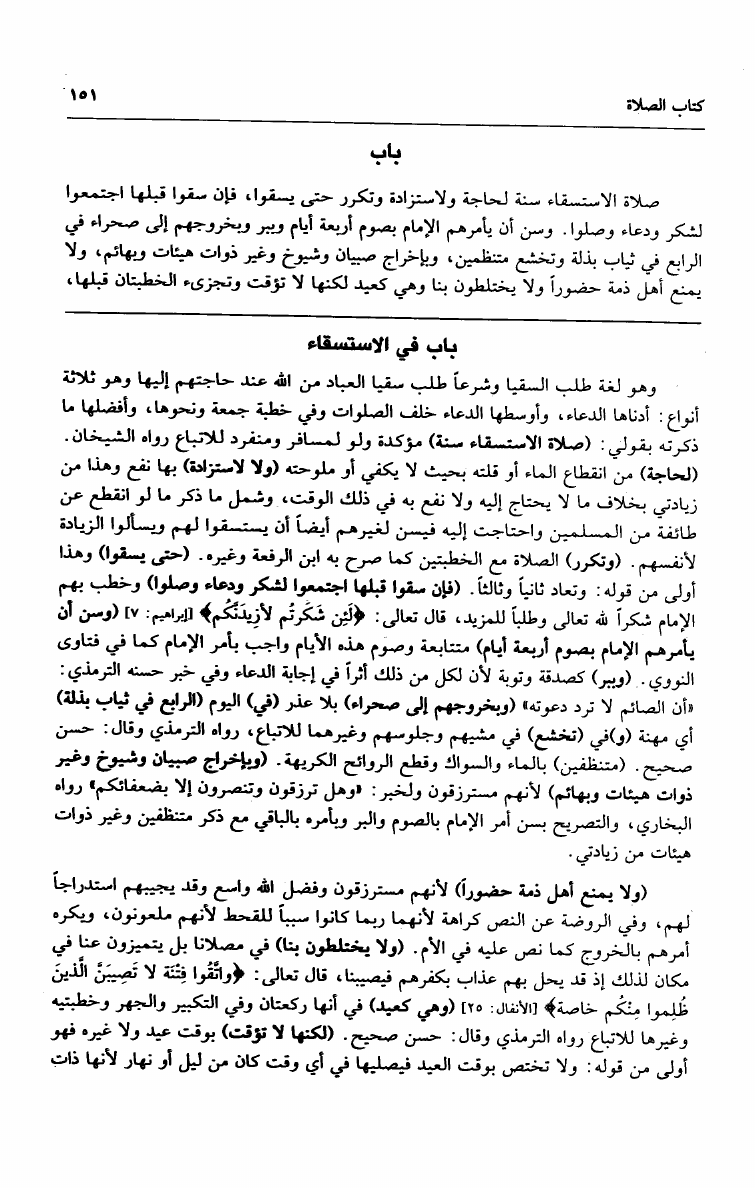 ١٥١
كتاب الصلاة
باب
صلاة الاستسقاء سنة لحاجة ولاستزادة وتكرر حتى يسقوا، فإن سقوا قبلها اجتمعوا
لشكر ودعاء وصلوا. وسن أن يأمرهم الإمام بصوم أربعة أيام وببر وبخروجهم إلى صحراء في
الرابع في ثياب بذلة وتخشع متنظمين، وبإخراج صبيان وشيوخ وغير ذوات هيئات وبهائم، ولا
يمنع أهل ذمة حضوراً ولا يختلطون بنا وهي كعيد لكنها لا تؤقت وتجزىء الخطبتان قبلها،
باب في الاستسقاء
وهو لغة طلب السقيا وشرعاً طلب سقيا العباد من الله عند حاجتهم إليها وهو ثلاثة
أنواع: أدناها الدعاء، وأوسطها الدعاء خلف الصلوات وفي خطبة جمعة ونحوها، وأفضلها ما
ذكرته بقولي: (صلاة الاستسقاء سنة) مؤكدة ولو لمسافر ومنفرد للاتباع رواه الشيخان.
(لحاجة) من انقطاع الماء أو قلته بحيث لا يكفي أو ملوحته (ولا لاستزادة) بها نفع وهذا من
زيادتي بخلاف ما لا يحتاج إليه ولا نفع به في ذلك الوقت، وشمل ما ذكر ما لو انقطع عن
طائفة من المسلمين واحتاجت إليه فيسن لغيرهم أيضاً أن يستسقوا لهم ويسألوا الزيادة
لأنفسهم. (وتكرر) الصلاة مع الخطبتين كما صرح به ابن الرفعة وغيره. (حتى يسقوا) وهذا
أولى من قوله: وتعاد ثانياً وثالثاً. (فإن سقوا قبلها اجتمعوا لشكر ودعاء وصلوا) وخطب بهم
الإمام شكراً لله تعالى وطلباً للمزيد، قال تعالى: ﴿لَئِن شَكَرتُم لأزِيدَنَّكُم﴾ [إبراهيم: ٧] (وسن أن
يأمرهم الإمام بصوم أربعة أيام) متتابعة وصوم هذه الأيام واجب بأمر الإمام كما في فتاوى
النووي. (وببر) كصدقة وتوبة لأن لكل من ذلك أثراً في إجابة الدعاء وفي خبر حسنه الترمذي:
«أن الصائم لا ترد دعوته» (وبخروجهم إلى صحراء) بلا عذر (في) اليوم (الرابع في ثياب بذلة)
أي مهنة (و)في (تخشع) في مشيهم وجلوسهم وغيرهما للاتباع، رواه الترمذي وقال: حسن
صحيح. (متنظفين) بالماء والسواك وقطع الروائح الكريهة. (وبإخراج صبيان وشيوخ وغير
ذوات هيئات وبهائم) لأنهم مسترزقون ولخبر: «وهل ترزقون وتنصرون إلا بضعفائكم» رواه
البخاري، والتصريح بسن أمر الإمام بالصوم والبر وبأمره بالباقي مع ذكر متنظفين وغير ذوات
هيئات من زيادتي.
(ولا يمنع أهل ذمة حضوراً) لأنهم مسترزقون وفضل الله واسع وقد يجيبهم استدراجاً
لهم، وفي الروضة عن النص كراهة لأنهما ربما كانوا سبباً للقحط لأنهم ملعونون، ويكره
أمرهم بالخروج كما نص عليه في الأم. (ولا يختلطون بنا) في مصلانا بل يتميزون عنا في
مكان لذلك إذ قد يحل بهم عذاب بكفرهم فيصيبنا، قال تعالى: ﴿واتَّقُوا فِتْنَة لا تَصِيبَنَّ الَّذينَ
ظُلِموا مِنْكُم خاصة﴾ [الأنفال: ٢٥] (وهي كعيد) في أنها ركعتان وفي التكبير والجهر وخطبتيه
وغيرها للاتباع رواه الترمذي وقال: حسن صحيح. (لكنها لا تؤقت) بوقت عيد ولا غيره فهو
أولى من قوله: ولا تختص بوقت العيد فيصليها في أي وقت كان من ليل أو نهار لأنها ذات